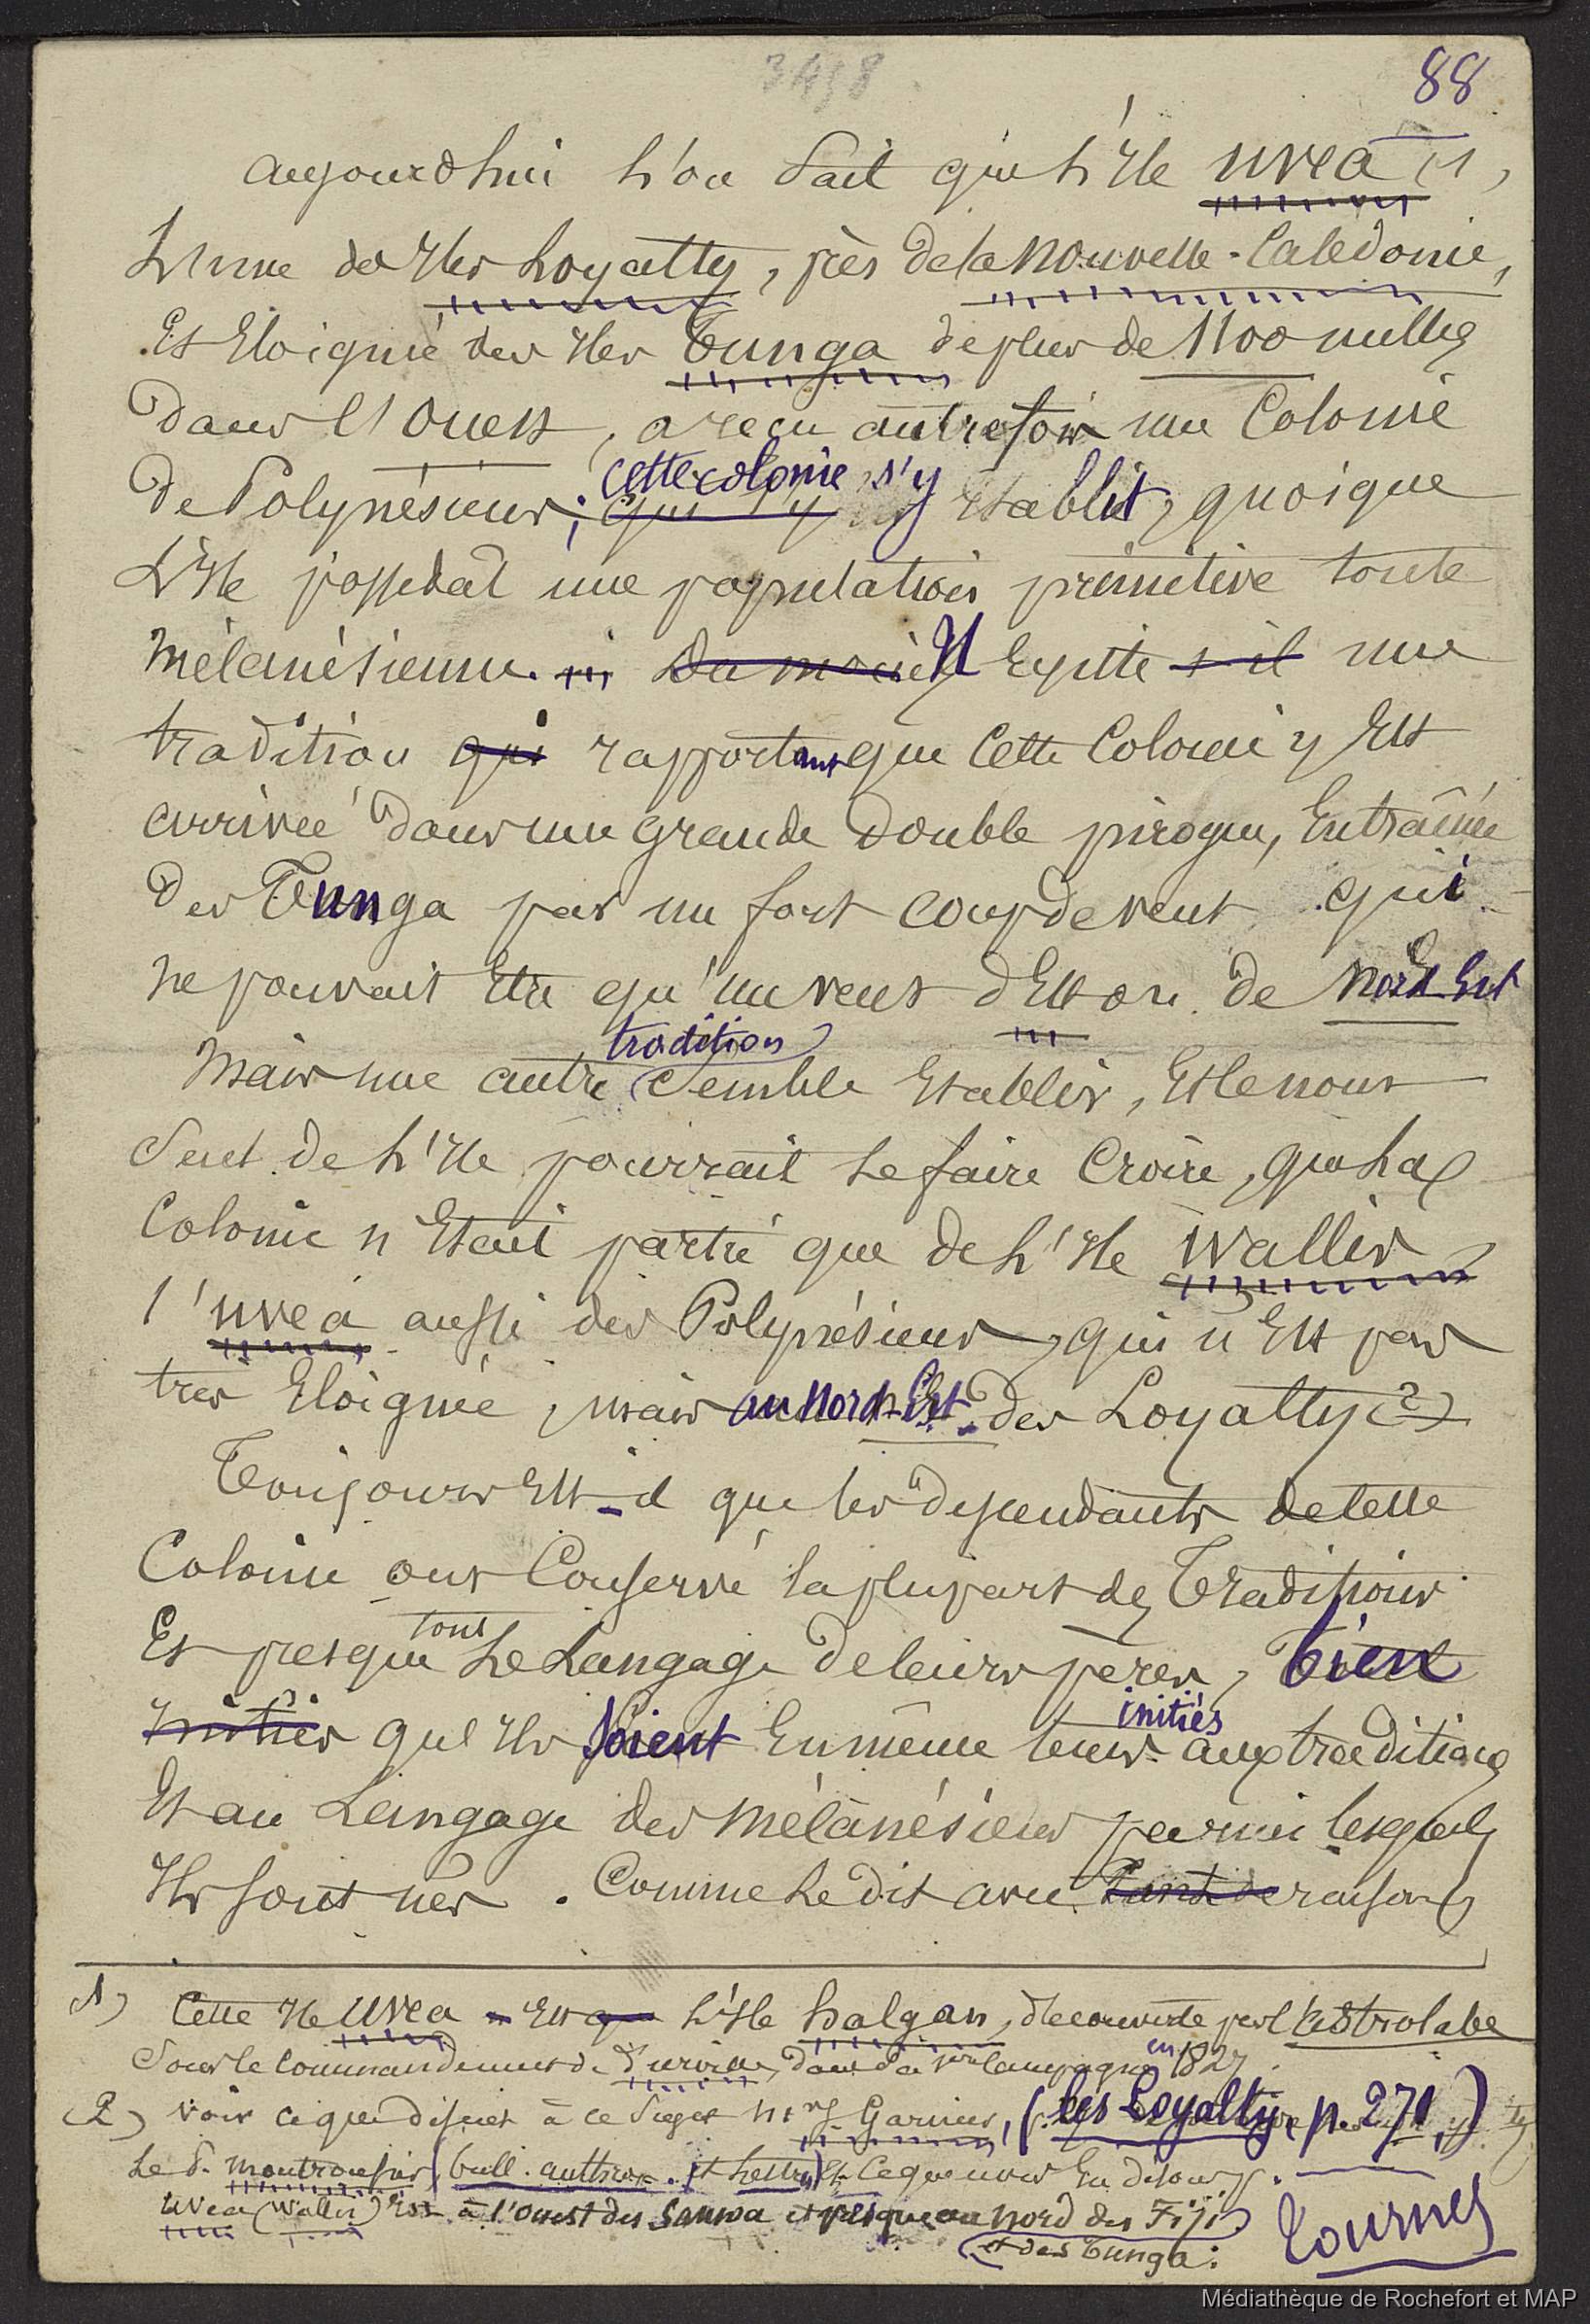 3458
88
aujourd'hui l'on sait que l'Ile Uvea (1,
L'une des Iles Loyalty, près de la Nouvelle-Caledonie,
Et Eloignée des Iles Tunga de plus de 1100 milles
dans l'Ouest, a reçu autrefois une Colonie
cette colonie s'y
de Polynésiens; qui s'y établit, quoique
L'Ile possédat une population primitive toute
mélanésienne. Il Existe s-il une
tradition qui rapportant que Cette Colonie y Est
arrivée dans une grande double pirogue, Entraînée
des Tunga par un fort coup de vent qui
ne pouvait Etre qu'un vent d'Est ou de Nord Est
tradition
Mais une autre semble Etablir, Et le nom
seul de l'Ile pourrait le faire Croire, que la
Colonie n'Etait partie que de l'Ile Wallis,
l'Uvea aussi des Polynésiens, qui n'Est pas
très Eloignée, mais au Nord-Est des Loyalty (2)
Toujours Est-il que les descendants de cette
Colonie ont Conservé la plupart des Traditions
tout
Et presque le Langage de leurs pères, bien
initiés
initiés qu'Ils soient En même temps aux traditions
Et au Langage des Mélanésiens parmi lesquels
Ils sont nés. Comme le dit avec tant de raison
1) Cette Ile Uvea Est l'Ile halgan, découverte par l'Astrolabe
Sous le Commandement de d'urville, dans sa 1re Campagne en 1827.
(2) voir ce que disent à ce sujet Mrs Garnier, (les Loyalty, p. 271,)
Le P. Montrouzier, (bull. anthrop. et lettres) Et Ce que nous En disons p.
Uvea (Wallis) Est à l'Ouest des Samoa et presque au nord des Fiji
et des Tunga.
tournez
Médiathèque de Rochefort et MAP